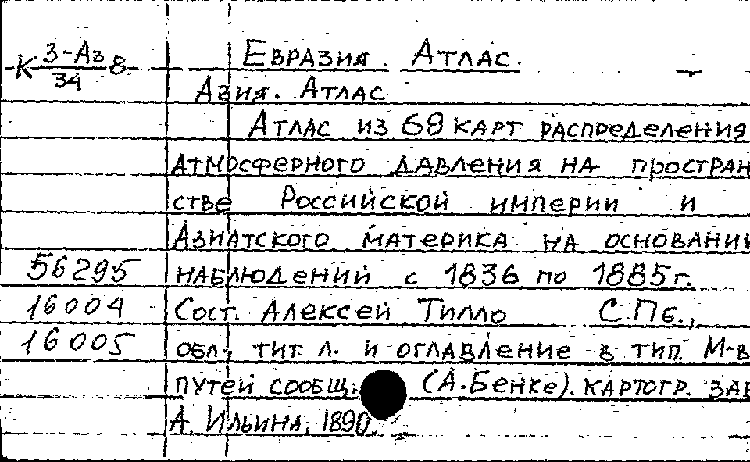 К 3-Аз/34 8
Евразия. Атлас.
Азия. Атлас
Атлас из 69 карт распределения
атмосферного давления на простран
стве Российской империи и
Азиатского материка на основании
56295 наблюдений с 1836 по 1885г.
16004 Сост. Алексей Тилло С.Пб.,
16005 обл., тит. л. и оглавление в тип. М-в
путей сообщ. (А.Бенке). картогр. зав
А. Ильина, 1890.